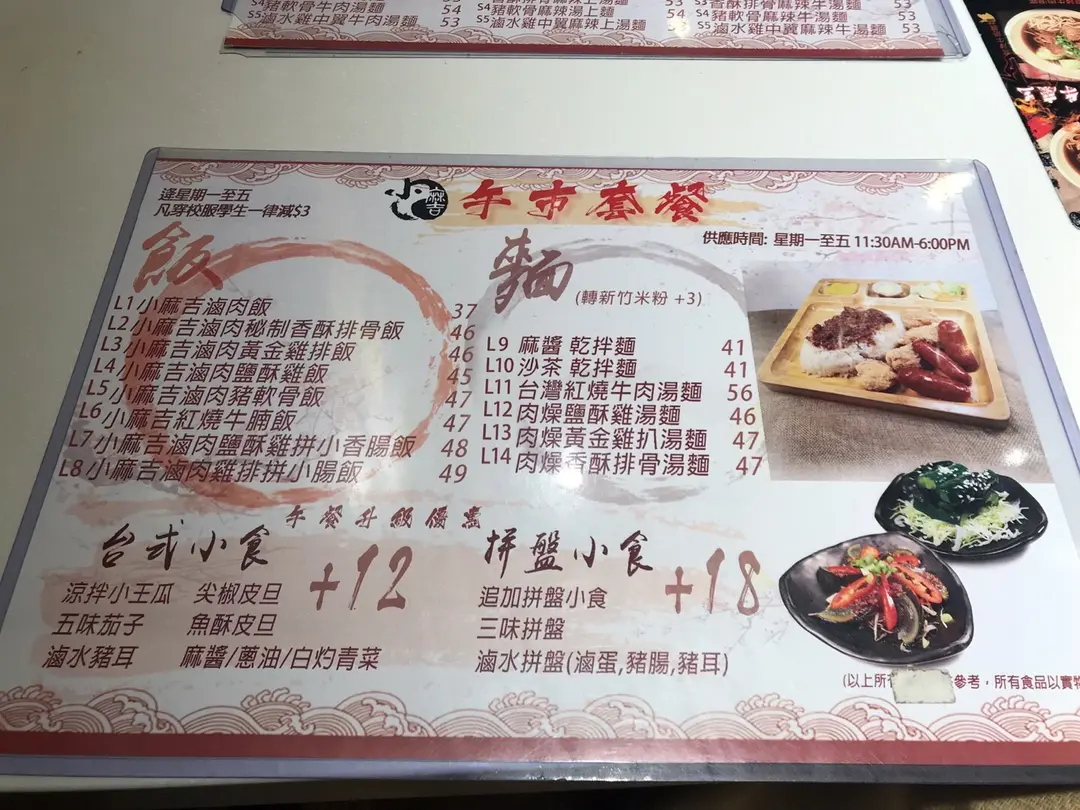 S4豬軟骨牛肉湯麵 54
S5滷水雞中翼牛肉湯麵 53
S4豬軟骨麻辣上湯麵 54
S5滷水雞中翼麻辣上湯麵 53
S4豬軟骨麻辣牛湯麵 53
S5滷水雞中翼麻辣牛湯麵 53
逢星期一至五
凡穿校服學生一律減$3
小麻吉 午市套餐
供應時間: 星期一至五 11:30AM-6:00PM
飯
L1 小麻吉滷肉飯 37
L2 小麻吉滷肉秘制香酥排骨飯 46
L3 小麻吉滷肉黃金雞排飯 46
L4 小麻吉滷肉鹽酥雞飯 45
L5 小麻吉滷肉豬軟骨飯 47
L6 小麻吉紅燒牛腩飯 47
L7 小麻吉滷肉鹽酥雞拼小香腸飯 48
L8 小麻吉滷肉雞排拼小腸飯 49
麵
(轉新竹米粉 +3)
L9 麻醬 乾拌麵 41
L10 沙茶 乾拌麵 41
L11 台灣紅燒牛肉湯麵 56
L12 肉燥鹽酥雞湯麵 46
L13 肉燥黃金雞扒湯麵 47
L14 肉燥香酥排骨湯麵 47
午餐升級優惠
台式小食 +12
涼拌小王瓜 尖椒皮旦
五味茄子 魚酥皮旦
滷水豬耳 麻醬/蔥油/白灼青菜
拼盤小食 +18
追加拼盤小食
三味拼盤
滷水拼盤(滷蛋,豬腸,豬耳)
(以上所 參考，所有食品以實物